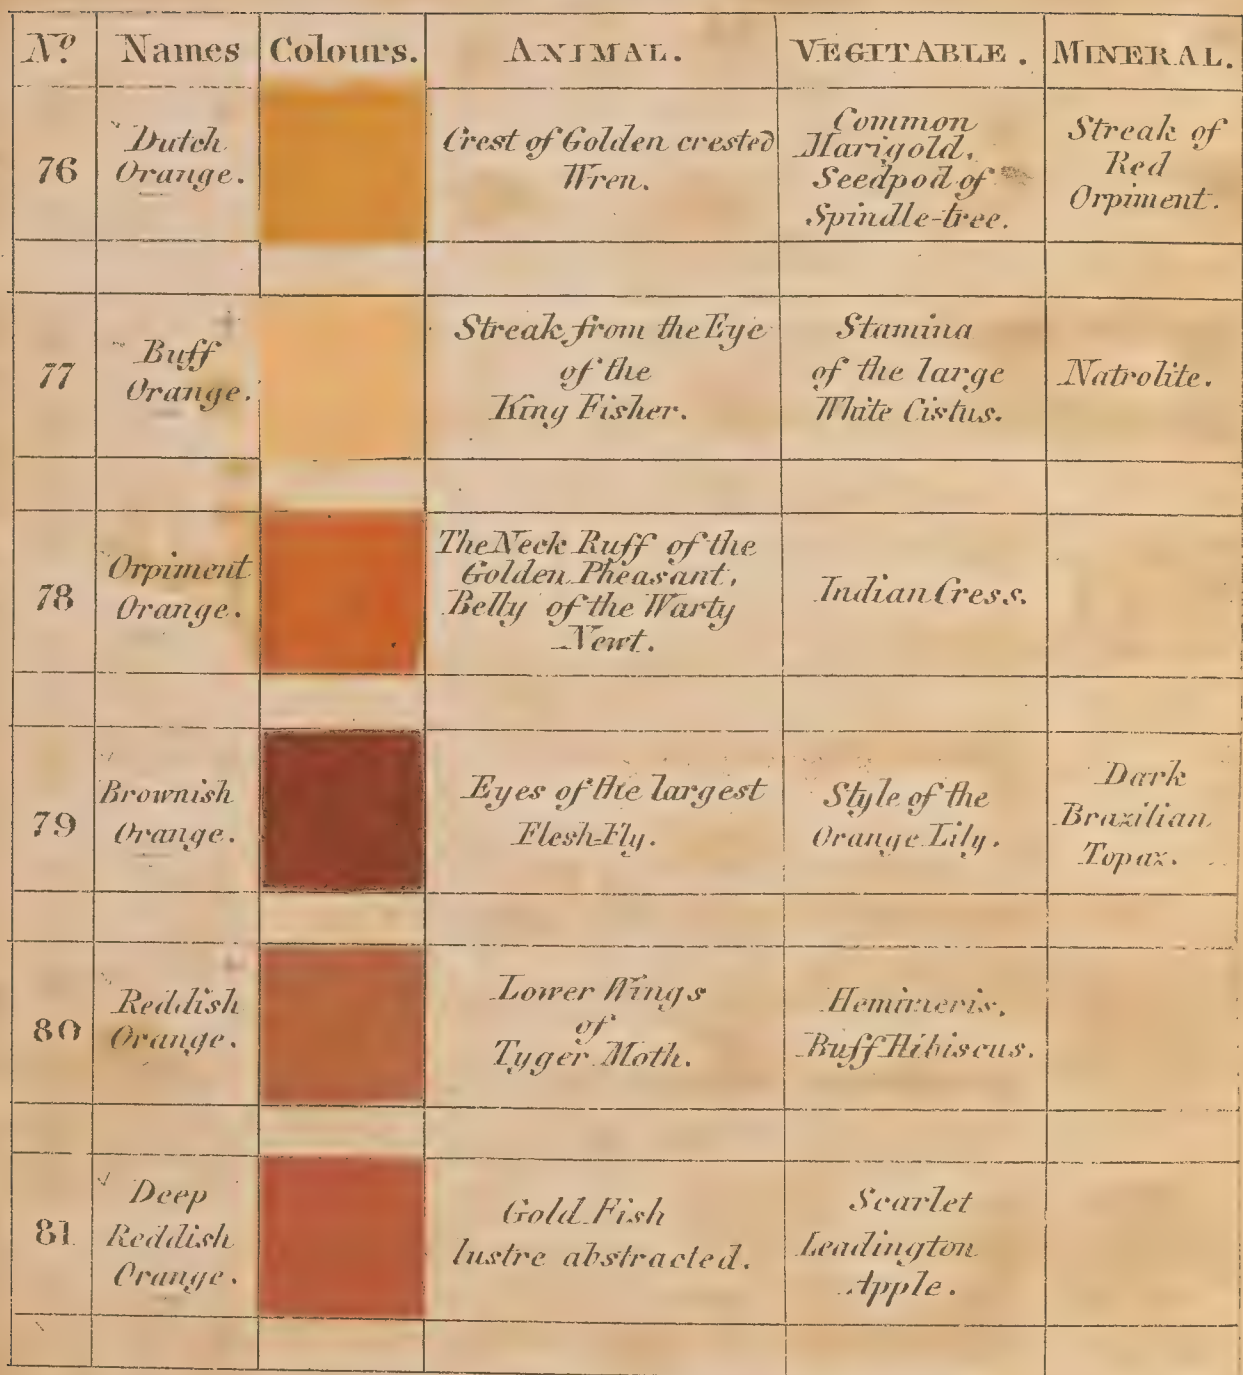 Nº Names Colours. ANIMAL. VEGITABLE. MINERAL.
76
Dutch
Orange.
Crest of Golden crested
Wren.
Common
Marigold,
Seedpod of
Spindle-tree.
Streak of
Red
Orpiment.
77
Buff
Orange.
Streak from the Eye
of the
King Fisher.
Stamina
of the large
White Cistus.
Natrolite.
78
Orpiment
Orange.
The Neck Ruff of the
Golden Pheasant,
Belly of the Warty
Newt.
Indian Cress.
79
Brownish
Orange.
Eyes of the largest
Flesh-Fly.
Style of the
Orange Lily.
Dark
Brazilian
Topaz.
80
Reddish
Orange.
Lower Wings
of
Tyger Moth.
Hemimeris.
Buff Hibiscus.
81
Deep
Reddish
Orange.
Gold Fish
lustre abstracted.
Scarlet
Leadington
Apple.